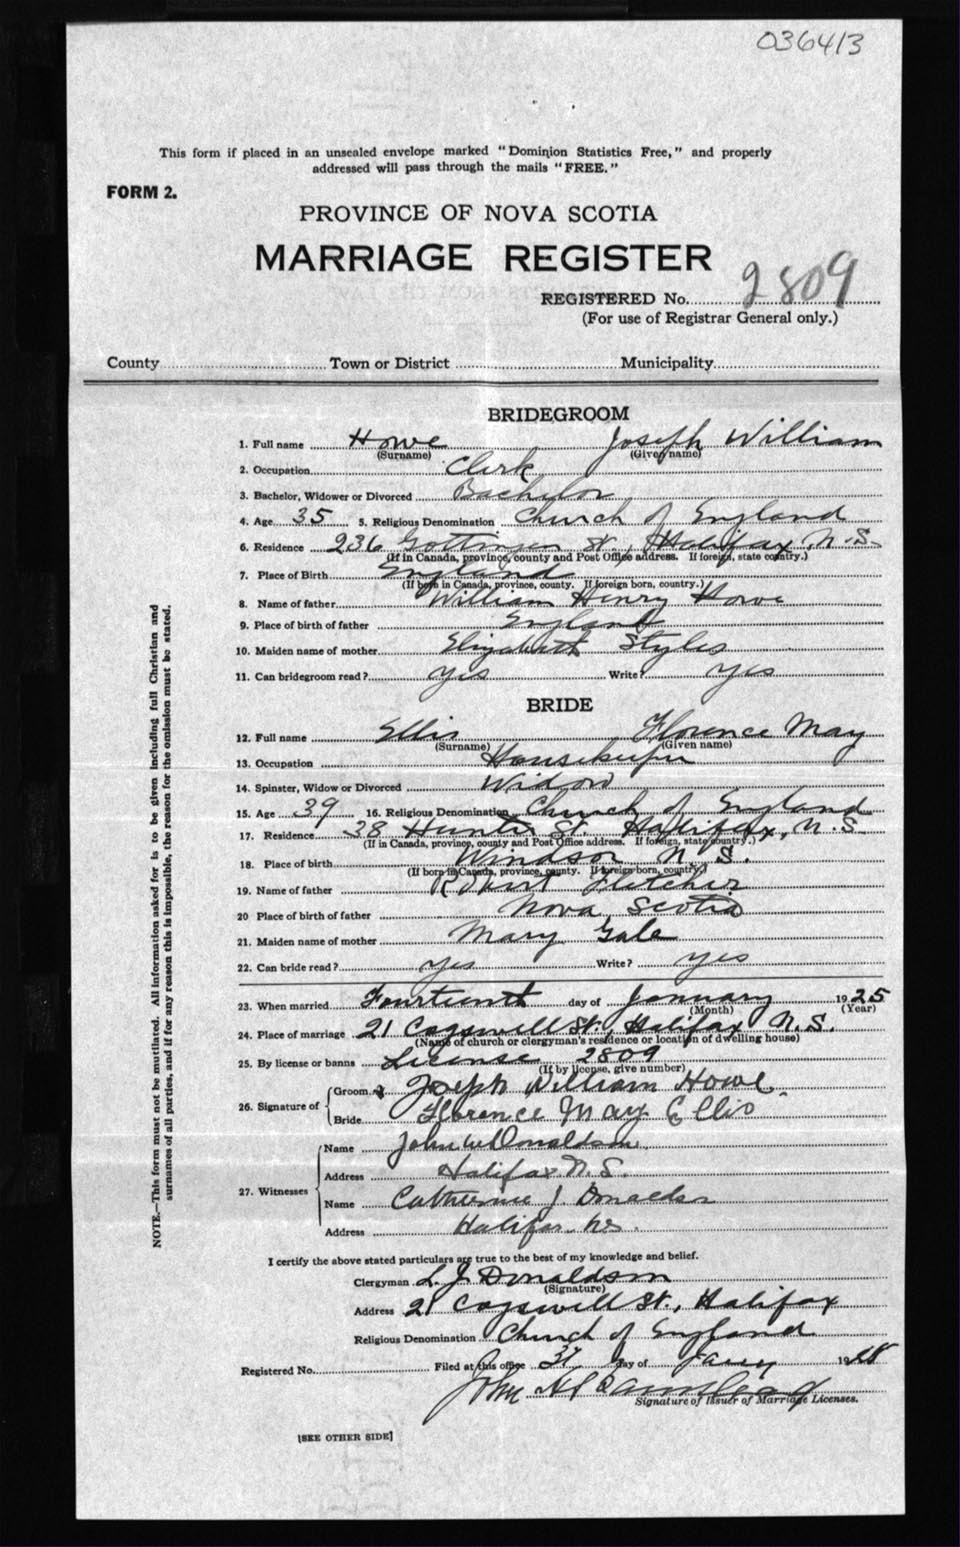 036413
This form if placed in an unsealed envelope marked "Dominion Statistics Free," and properly
addressed will pass through the mails "FREE."
FORM 2.
PROVINCE OF NOVA SCOTIA
MARRIAGE REGISTER
REGISTERED No. 2809
(For use of Registrar General only.)
County Town or District Municipality
BRIDEGROOM
1. Full name Howe Joseph William
(Surname) (Given name)
2. Occupation Clerk
3. Bachelor, Widower or Divorced Bachelor
4. Age 35 5. Religious Denomination Church of England
6. Residence 236 Gottingen St, Halifax, N.S.
(If in Canada, province, county and Post Office address. If foreign, state country.)
7. Place of Birth England
(If born in Canada, province, county. If foreign born, country.)
8. Name of father William Henry Howe
9. Place of birth of father England
10. Maiden name of mother Elizabeth Styles
11. Can bridegroom read? yes Write? yes
BRIDE
12. Full name Ellis Florence May
(Surname) (Given name)
13. Occupation Housekeeper
14. Spinster, Widow or Divorced Widow
15. Age 39 16. Religious Denomination Church of England
17. Residence 38 Hunter St. Halifax, N.S.
(If in Canada, province, county and Post Office address. If foreign, state country.)
18. Place of birth Windsor N.S.
(If born in Canada, province, county. If foreign born, country.)
19. Name of father Robert Fletcher
20 Place of birth of father Nova Scotia
21. Maiden name of mother Mary Gale
22. Can bride read? yes Write? yes
23. When married Fourteenth day of January 1925
(Month) (Year)
24. Place of marriage 21 Cogswell St., Halifax N.S.
(Name of church or clergyman's residence or location of dwelling house)
25. By license or banns License 2809
(If by license, give number)
26. Signature of
Groom Joseph William Howe.
Bride Florence May Ellis
27. Witnesses
Name John W Donaldson
Address Halifax N.S.
Name Catherine J. Donaldson
Address Halifax NS.
I certify the above stated particulars are true to the best of my knowledge and belief.
Clergyman L. J. Donaldson
(Signature)
Address 21 Cogswell St., Halifax
Religious Denomination Church of England
Registered No. Filed at this office day of Jany 19
John
Signature of Issuer of Marriage Licenses.
[SEE OTHER SIDE]
NOTE.—This form must not be mutilated. All information asked for is to be given including full Christian and
surnames of all parties, and if for any reason this is impossible, the reason for the omission must be stated.